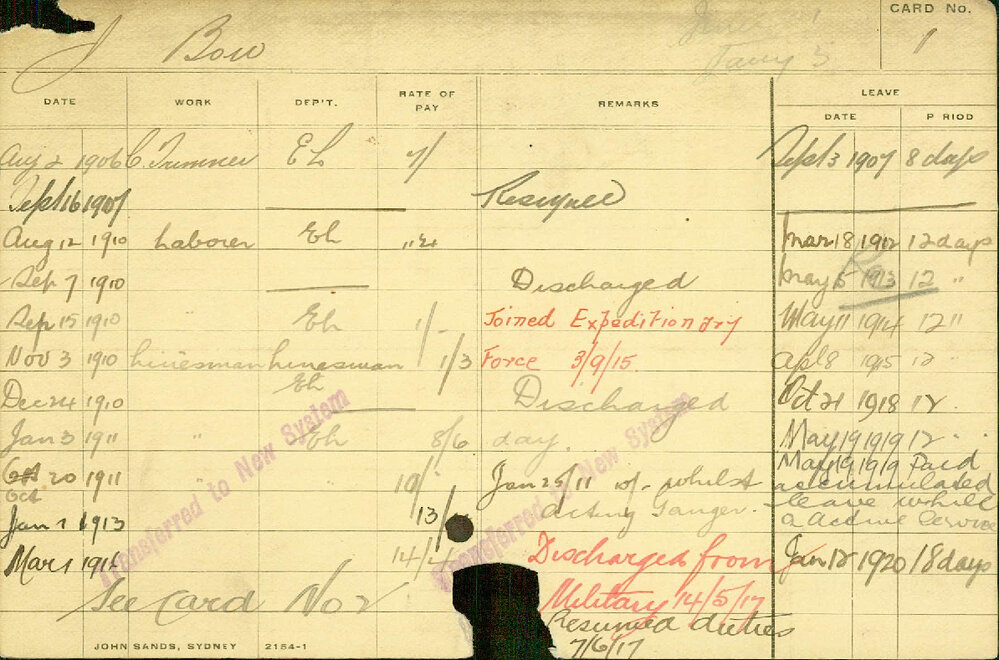 CARD No.
1
J Bow
DATE WORK DEP'T. RATE OF PAY REMARKS LEAVE
DATE P RIOD
Aug 2 1906 C. Trimmer E L 7/ Sept 3 1907 8 days
Sept 16 1907 Resigned
Aug 12 1910 Laborer Eh Mar 18 1912 12 days
Sep 7 1910 Discharged May 5 1913 12 "
Sep 15 1910 Eh 1/- Joined Expeditionary May 11 1914 12 "
Nov 3 1910 Linesman Linesman 1/3 Force 3/9/15. Apl 8 1915 12 "
Eh
Dec 24 1910 Discharged Oct 21 1918 12.
Jan 3 1911 " Eh 8/6 day. May 19 1919 12.
Oct 20 1911 " 10/ Jan 25/11 10/- whilst May 19 1919 Paid
Oct acting Ganger. accumulated
Jan 1 1913 13/ leave while
a Active Service
Mar 1 1914 14/4 Discharged from Jan 12 1920 18 days
See Card No 2 Military 14/5/17
Resumed duties
7/6/17
Transferred to New System
Transferred to New System
JOHN SANDS, SYDNEY 2154-1